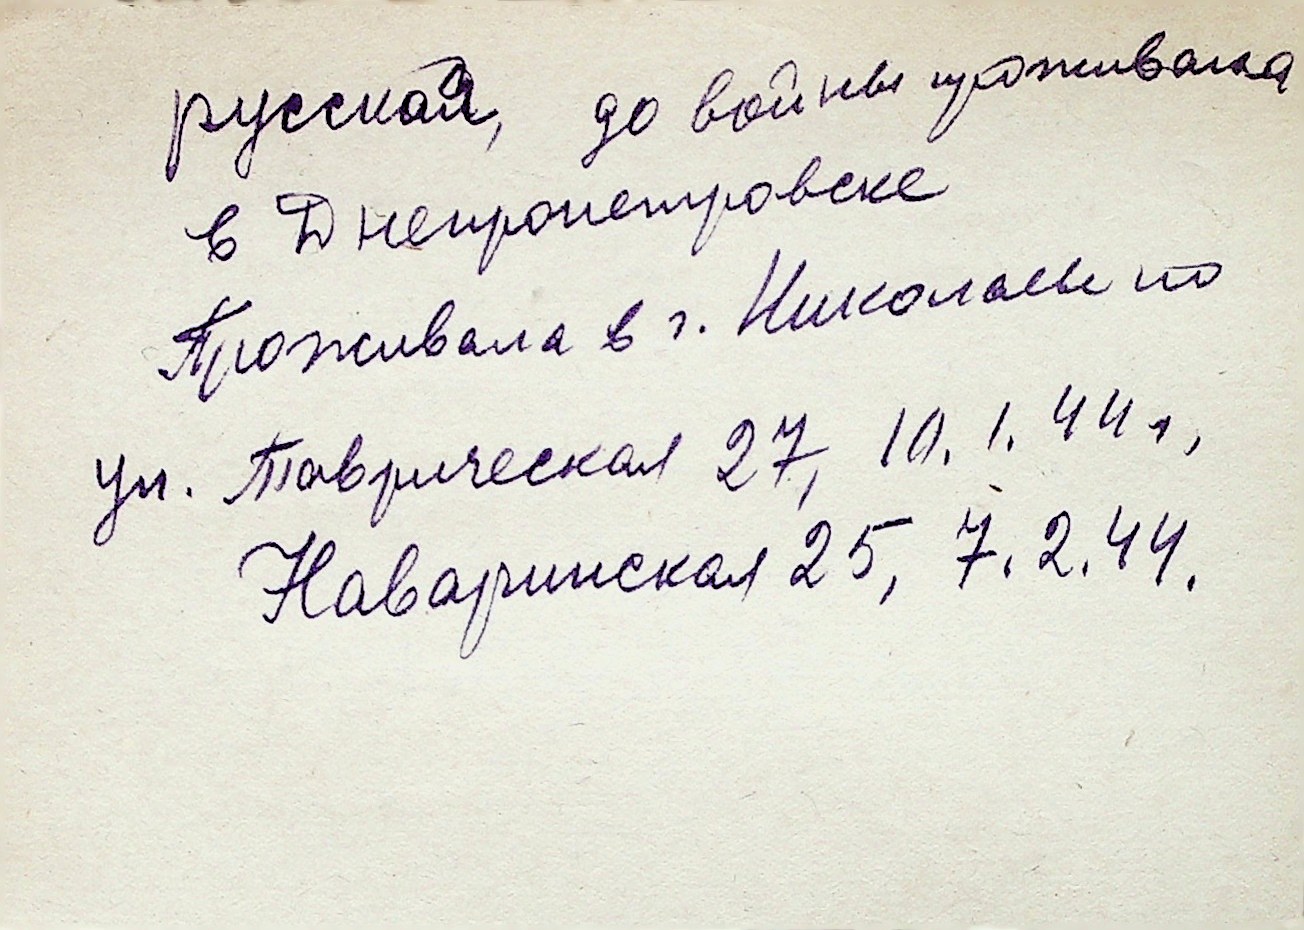 русская, до войны проживала
в Днепропетровске
Проживала в г. Николаеве по
ул. Таврическая 27, 10.1.44 г,
Наваринская 25, 7.2.44.